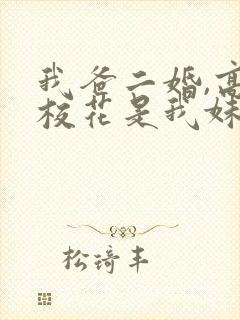 我爸二婚,高
校花是我妹
松琦丰